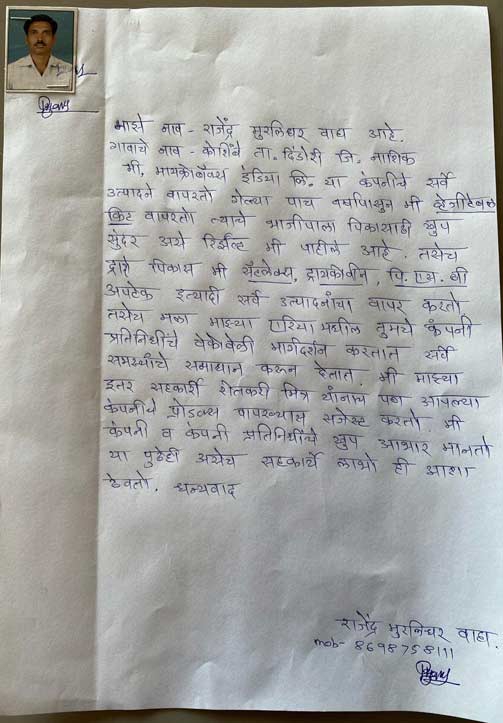 माझे नाव - राजेंद्र मुरलिधर वाघ आहे.
गावाचे नाव - कोशिंबे ता. दिंडोरी जि. नाशिक
मी, मायक्रोबॅक्स इंडिया लि. या कंपनीचे सर्व
उत्पादने वापरतो गेल्या पाच वर्षापासुन मी व्हेजीटेबल
किट वापरतो त्याचे भाजीपाला पिकासाठी खुप
सुंदर असे रिझल्ट मी पाहीले आहे. तसेच
द्राक्षे पिकास मी सॅलमेक्स, ड्रायकोवीन, पि. एस. बी
अपटेक इत्यादी सर्व उत्पादनांचा वापर करतो
तसेच मला माझ्या एरिया मधील तुमचे कंपनी
प्रतिनिधींचे वेळोवेळी मार्गदर्शन करतात सर्व
समस्यांचे समाधान करून देतात. मी माझ्या
इतर सहकारी शेतकरी मित्र यांनाच पण आपल्या
कंपनीचे प्रोडक्ट वापरण्यास सजेस्ट करतो. मी
कंपनी व कंपनी प्रतिनिधींचे खुप आभार मानतो
या पुढेही असेच सहकार्य लाभो ही आशा
ठेवतो. धन्यवाद
राजेंद्र मुरलिधर वाघ.
mob- 8698758111